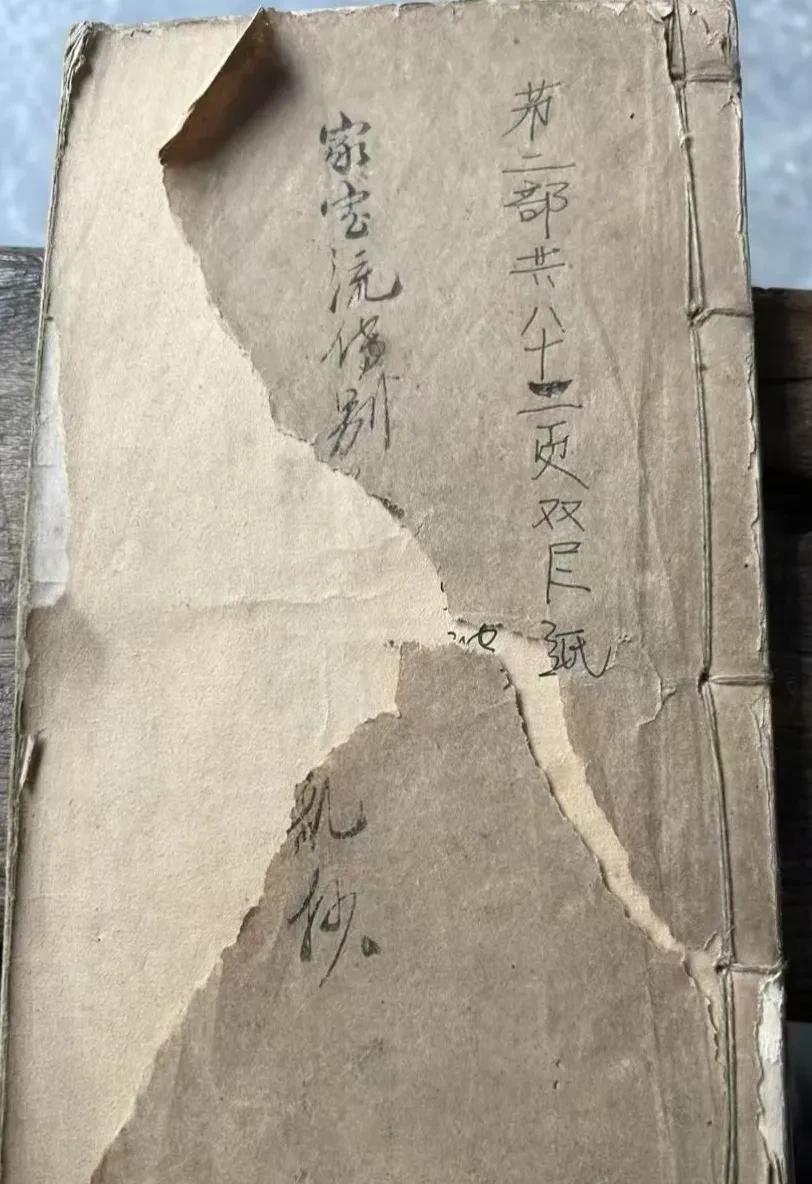 第二部共八十二页双尺纸
家宝流传别
乱抄